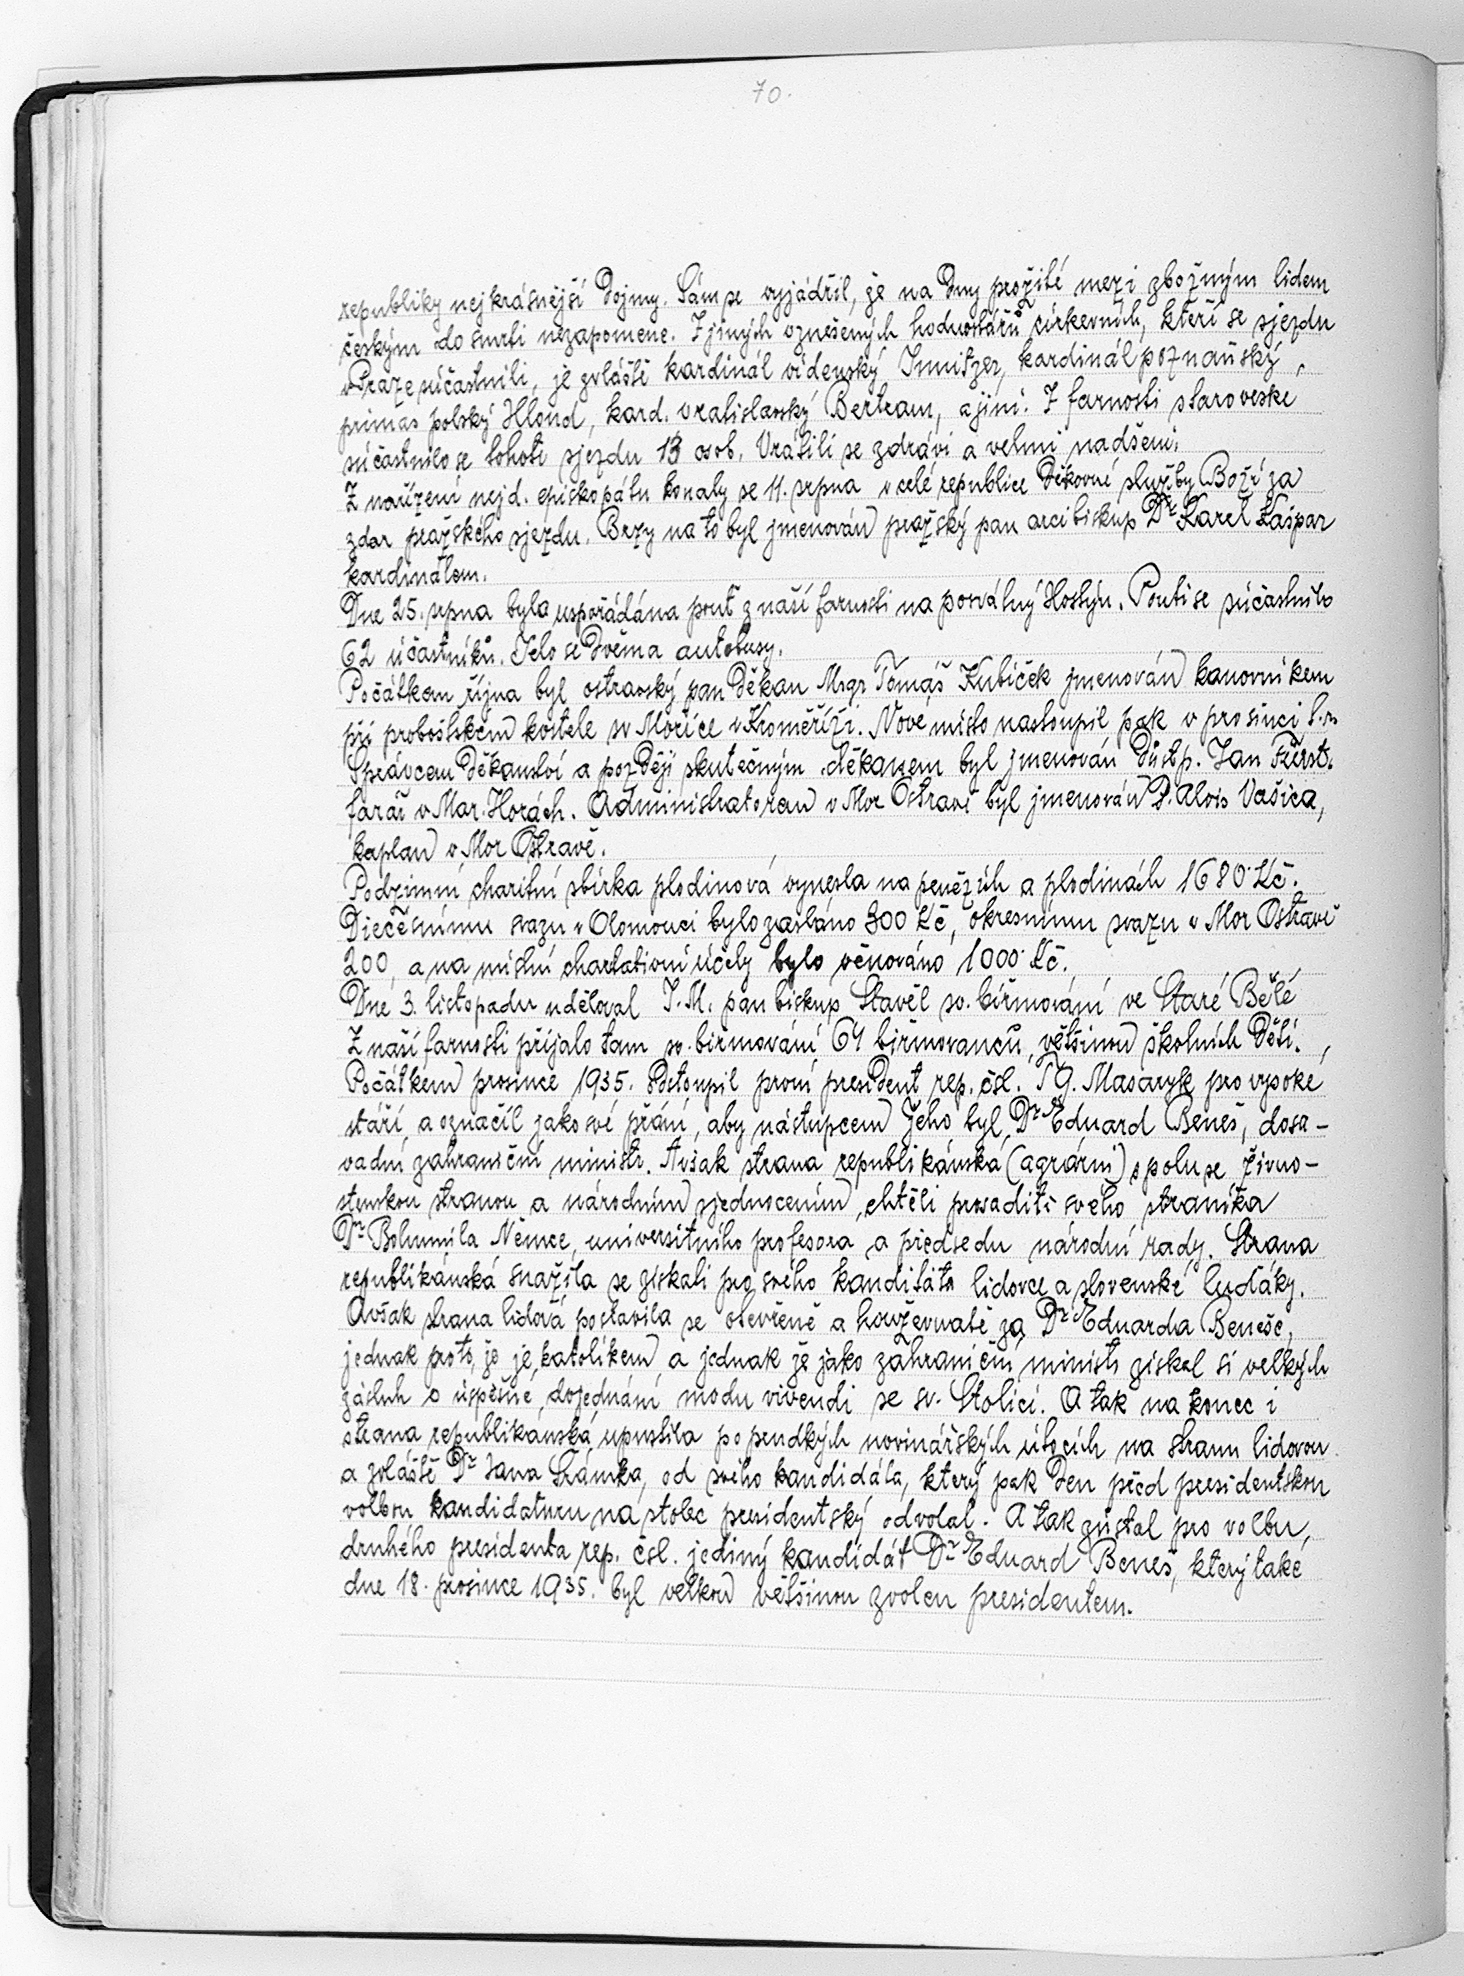 70.
republiky nejkrásnější dojmy. Sám se vyjádřil, že na dny prožité mezi zbožným lidem
českým do smrti nezapomene. Z jiných vznešených hodnostářů církevních, kteří se sjezdu
v Praze súčastnili, je zvláště kardinál vídenský Innitzer, kardinál poznaňský,
primas polský Hlond, kard. vratislavský Bertram, a jiní. Z farnosti staroveské
súčastnilo se tohoto sjezdu 13 osob. Vrátili se zdrávi a velmi nadšeni.
Z nařízení nejd. episkopátu konaly se 11. srpna v celé republice děkovné služby Boží za
zdar pražského sjezdu. Brzy na to byl jmenován pražský pan arcibiskup Dr Karel Kašpar
kardinálem.
Dne 25. srpna byla uspořádána pouť z naší farnosti na posvátný Hostýn. Pouti se súčastnilo
62 účastníků. Jelo se dvěma autobusy.
Počátkem října byl ostravský pan děkan Msgr Tomáš Kubíček jmenován kanovníkem
při proboštském kostele sv Mořice v Kroměříži. Nové místo nastoupil pak v prosinci t.r.
Správcem děkanství a později skutečným děkanem byl jmenován důstp. Jan Fürst.
farář v Mar. Horách. Administratorem v Mor Ostravě byl jmenován P. Alois Vašica,
kaplan v Mor Ostravě.
Podzimní charitní sbírka plodinová vynesla na penězích a plodinách 1680 Kč.
Diecésnímu svazu v Olomouci bylo zasláno 300 Kč, okresnímu svazu v Mor Ostravě
200, a na místní charitativní účely bylo věnováno 1000 Kč.
Dne 3. listopadu uděloval J. M. pan biskup Stavěl sv. biřmování ve Staré Bělé
Z naší farnosti přijalo tam sv. biřmování 64 biřmovanců, většinou školních dětí.
Počátkem prosince 1935. odstoupil první president rep. čsl. T G. Masaryk pro vysoké
stáří, a označil jako své přání, aby nástupcem jeho byl Dr Eduard Beneš, dosa-
vadní zahraniční ministr. Avšak strana republikánská (agrární) spolu se živno-
stenskou stranou a národním sjednocením, chtěli prosaditi svého straníka
Dr Bohumila Němce, universitního profesora a předsedu národní rady. Strana
republikánská snažila se získati pro svého kandidáta lidovce a slovenské luďáky.
Avšak strana lidová postavila se otevřeně a houževnatě za Dr Eduarda Beneše,
jednak proto, že je katolíkem a jednak že jako zahraniční ministr získal si velkých
zásluh o úspěšné dojednání modu vivendi se sv. Stolicí. A tak na konec i
strana republikánská upustila po prudkých novinářských útocích na stranu lidovou
a zvláště Dr Jana Šrámka, od svého kandidáta, který pak den před presidentskou
volbou kandidaturu na stolec presidentský odvolal. A tak zůstal pro volbu
druhého presidenta rep. čsl. jediný kandidát Dr Eduard Beneš, který také
dne 18. prosince 1935. byl velkou většinou zvolen presidentem.